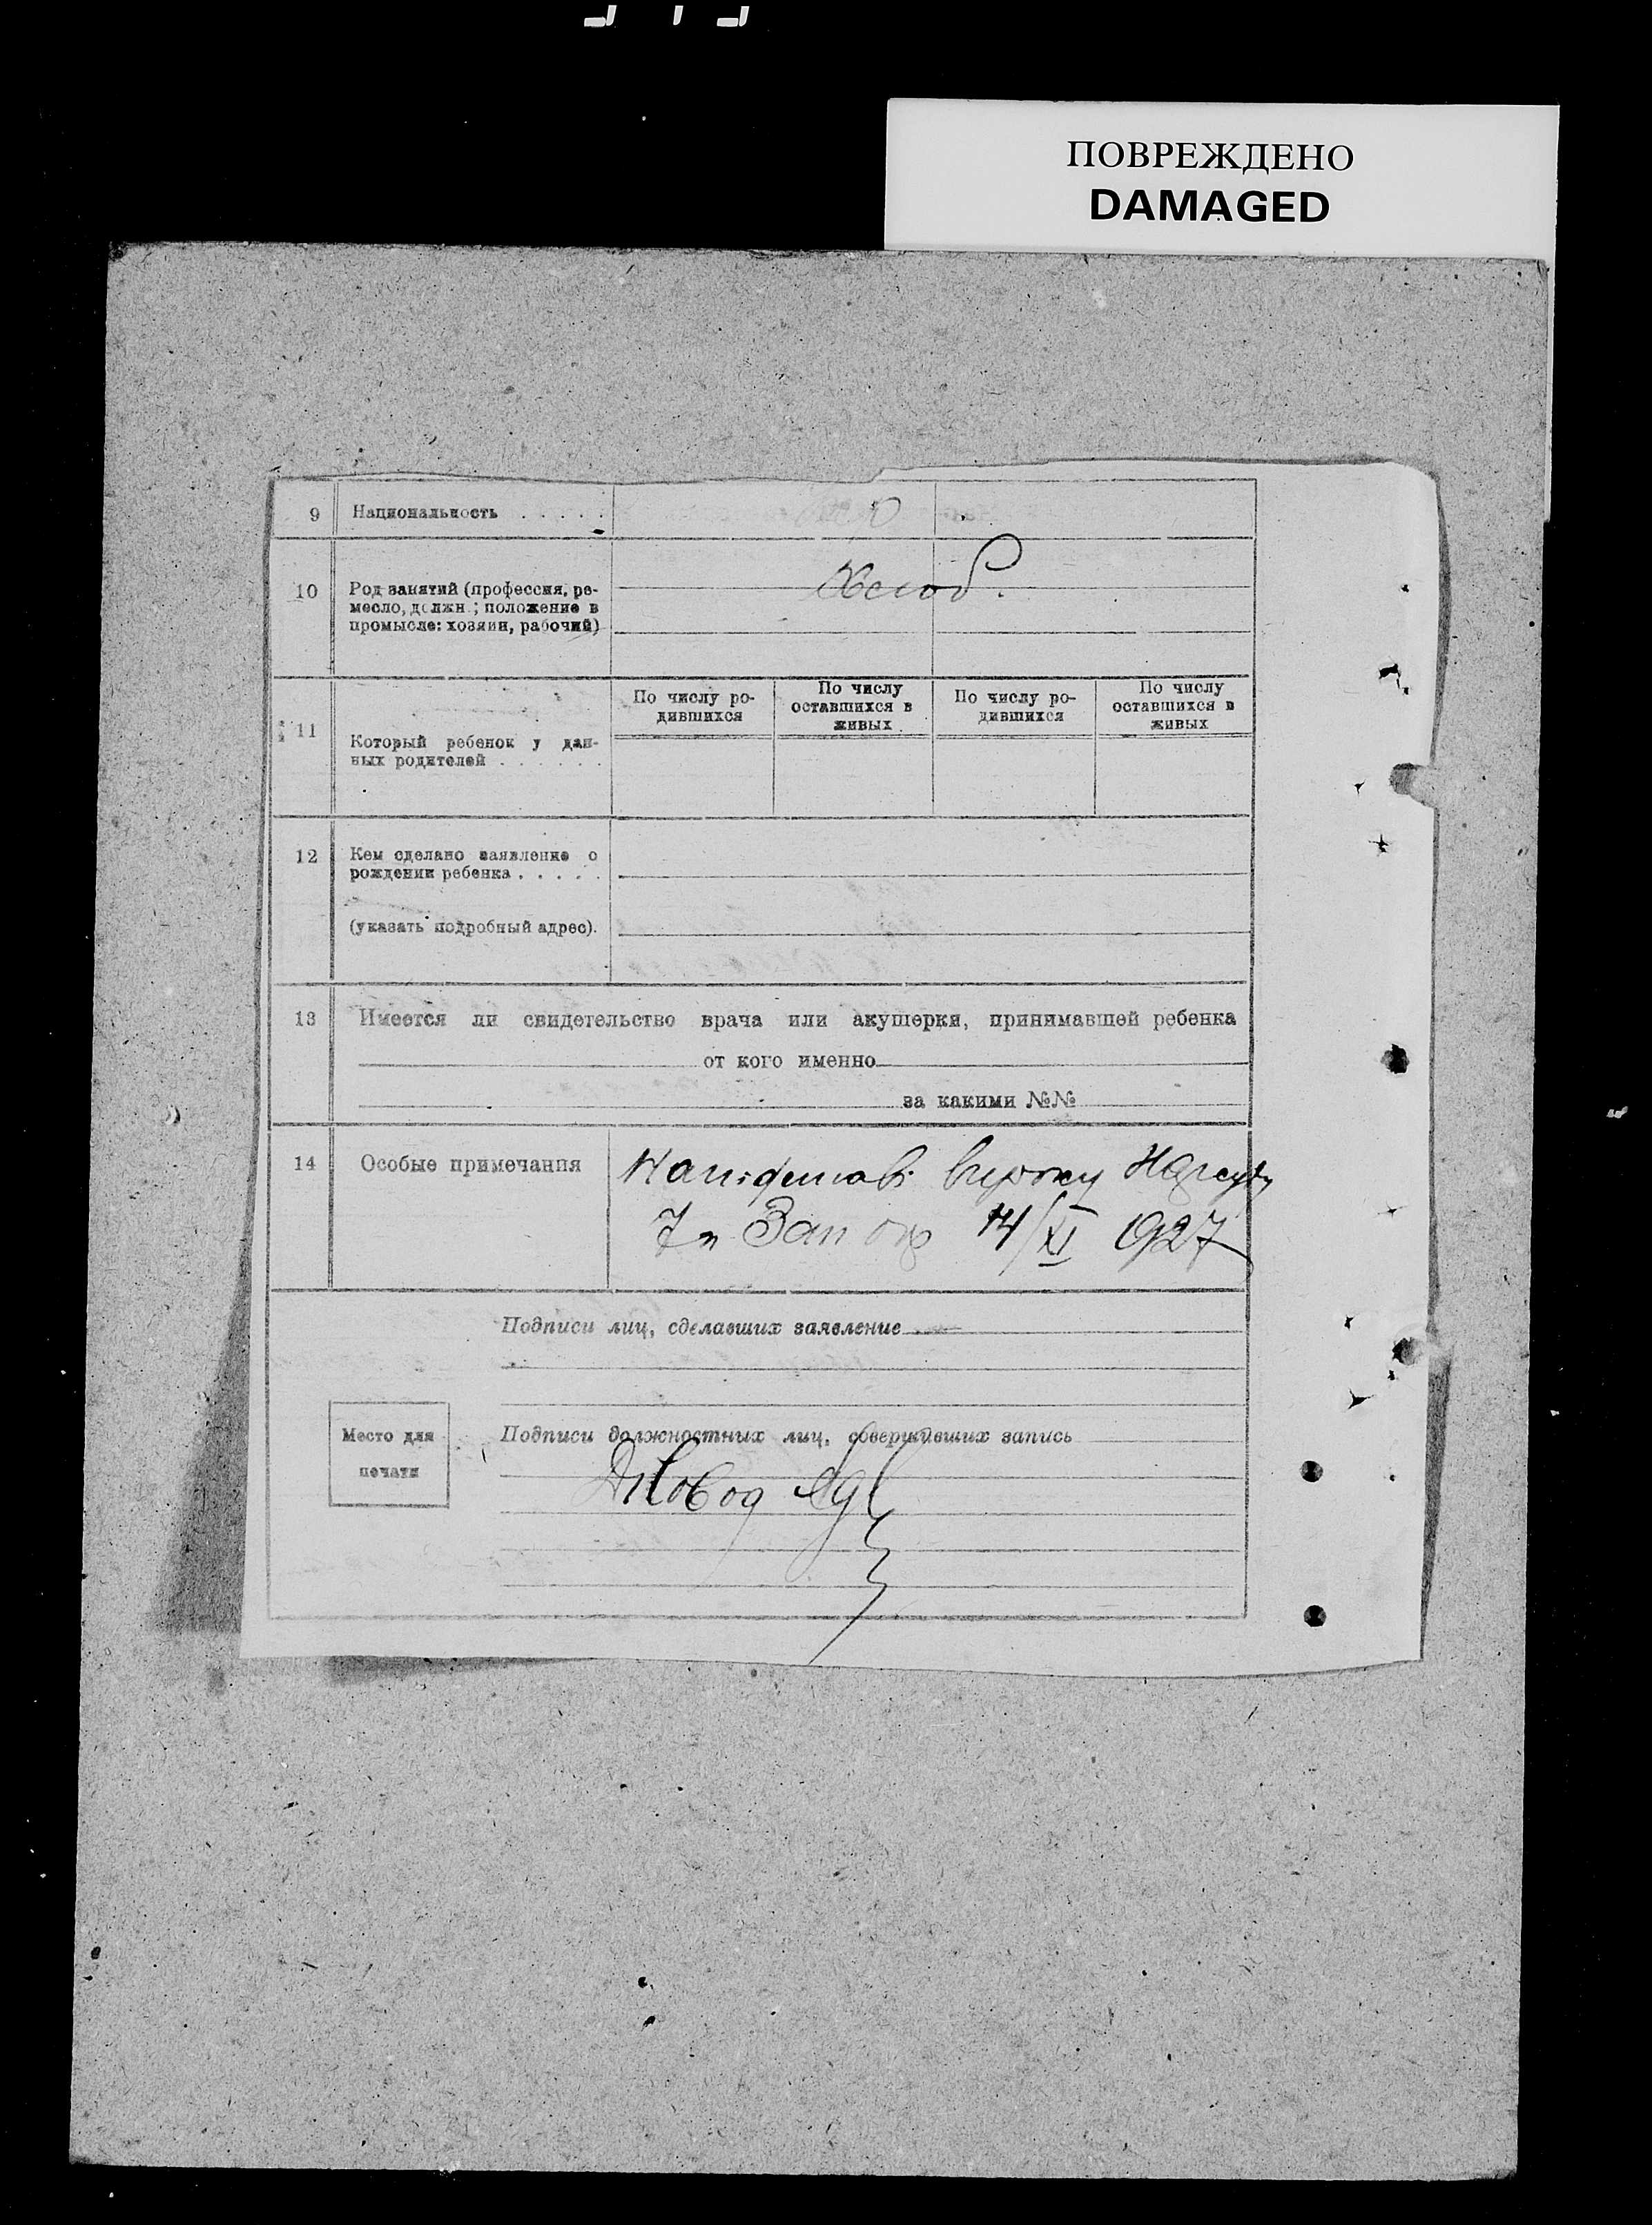 ПОВРЕЖДЕНО
DAMAGED
9 Национальность . . . . .
10 Род занятий (профессия, ре-
месло, должн.; положение в
промысле: хозяин, рабочий)
Хлеюб.
11 Который ребенок у дан-
ных родителей . . . . . .
По числу ро-
дившихся
По числу
оставшихся в
живых
По числу ро-
дившихся
По числу
оставшихся в
живых
12 Кем сделано заявление о
рождении ребенка . . . . .
(указать подробный адрес).
13 Имеется ли свидетельство врача или акушерки, принимавшей ребенка
от кого именно
за какими №№
14 Особые примечания
На підставі вироку Нарсуду
7 Зап окр 14/XI 1927
Подписи лиц, сделавших заявление
Место для
печати
Подписи должностных лиц, совершивших запись
Діловод